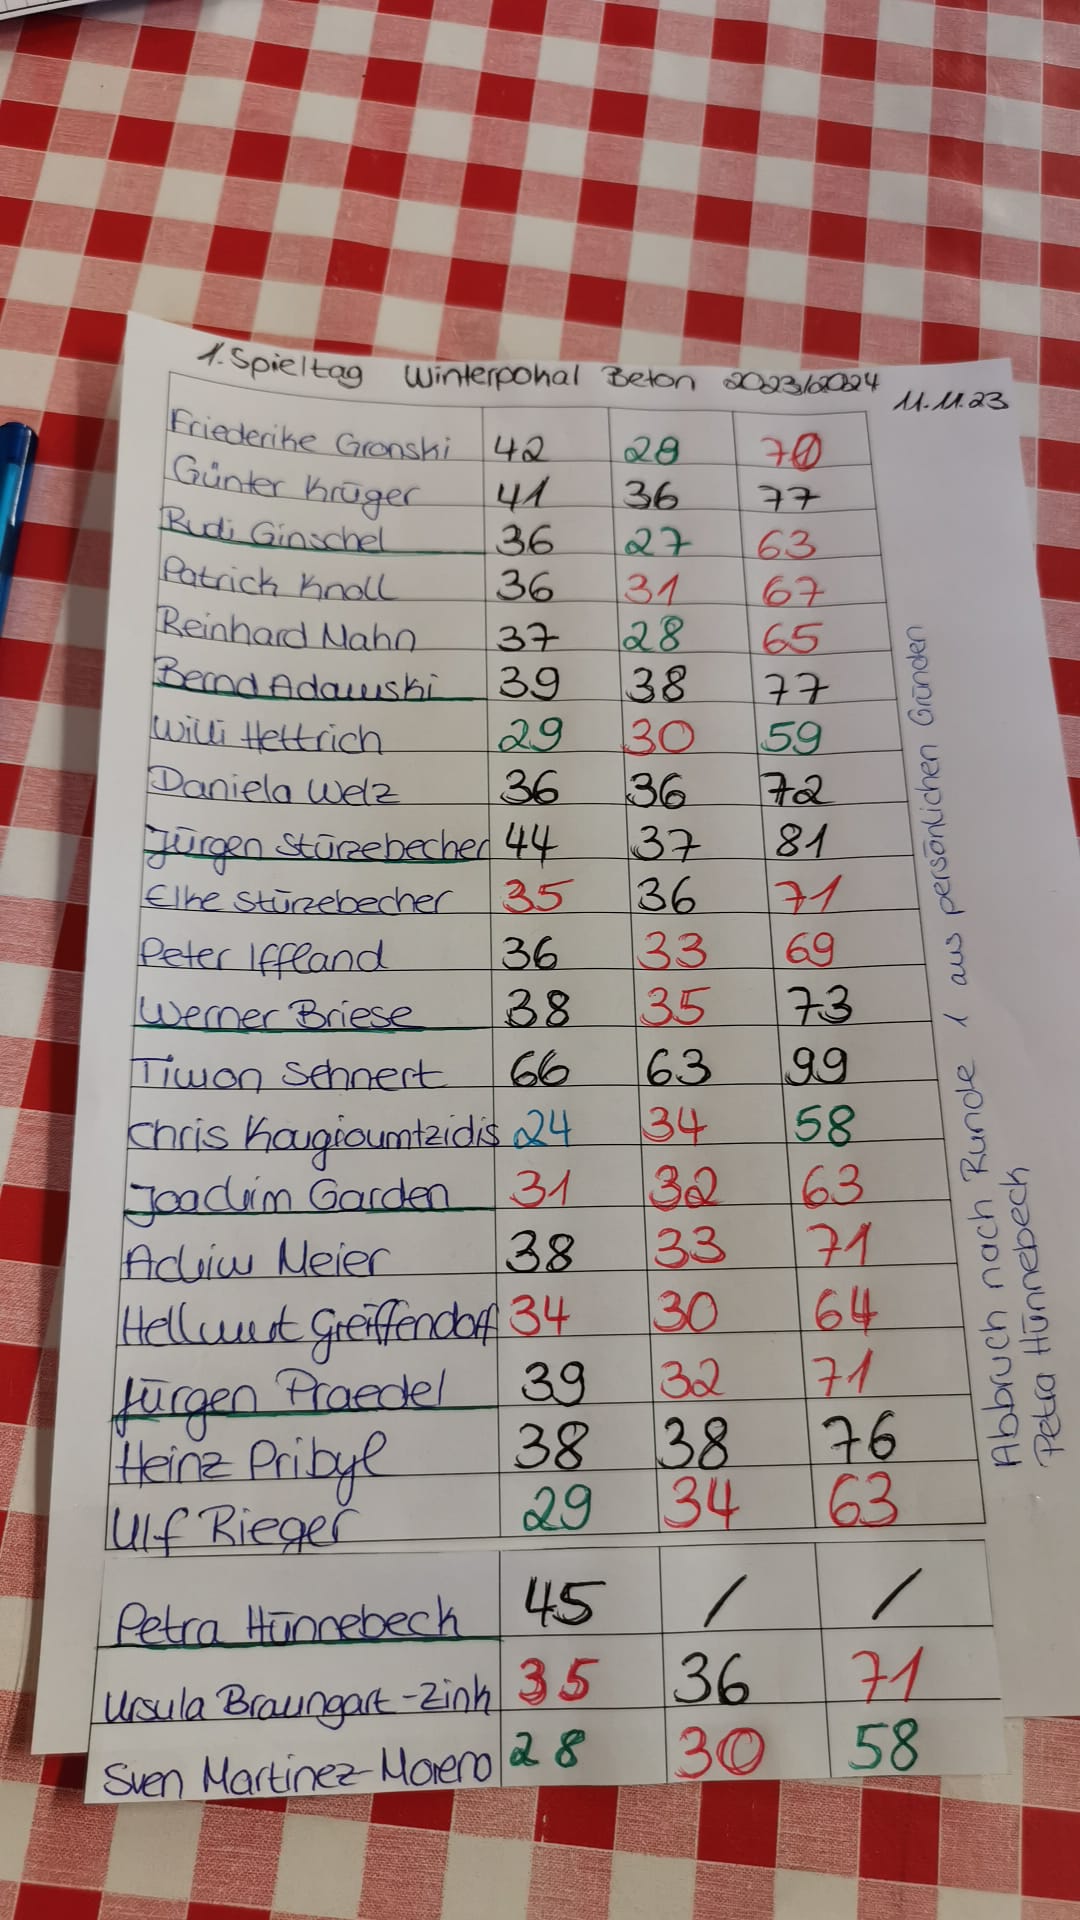 1. Spieltag Winterpokal Beton 2023/2024 11.11.23
Friederike Gronski 42 28 70
Günter Krüger 41 36 77
Rudi Ginschel 36 27 63
Patrick Knoll 36 31 67
Reinhard Mahn 37 28 65
Bernd Adawski 39 38 77
Willi Hettrich 29 30 59
Daniela Welz 36 36 72
Jürgen Stürzebecher 44 37 81
Elke Stürzebecher 35 36 71
Peter Iffland 36 33 69
Werner Briese 38 35 73
Timon Sehnert 66 63 99
Chris Kougioumtzidis 24 34 58
Joachim Garden 31 32 63
Achim Meier 38 33 71
Hellmut Greiffendorf 34 30 64
Jürgen Praedel 39 32 71
Heinz Pribyl 38 38 76
Ulf Rieger 29 34 63
Petra Hünnebeck 45 / /
Ursula Braungart-Zink 35 36 71
Sven Martinez-Moreno 28 30 58
Abbruch nach Runde 1 aus persönlichen Gründen
Petra Hünnebeck